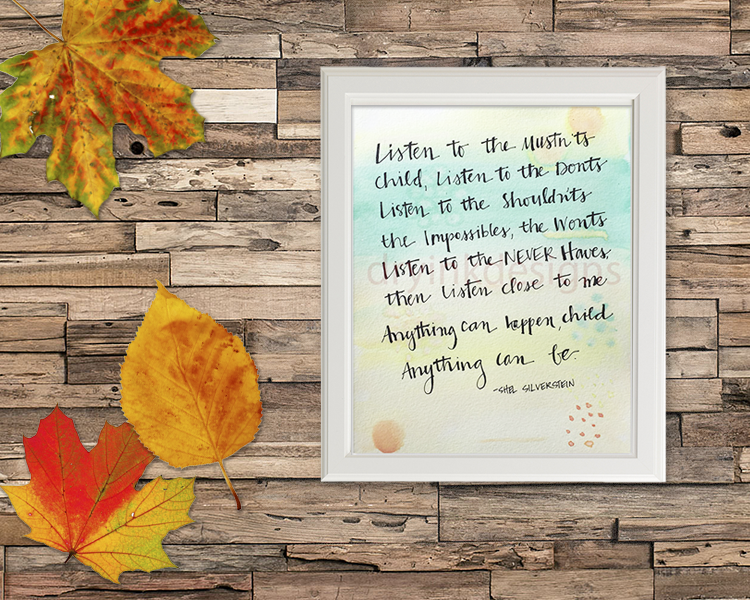 Listen to the Mustn'ts
child, Listen to the Donts
Listen to the Shouldn'ts
the Impossibles, the Wonts
Listen to the NEVER Haves,
then Listen close to me
Anything can happen, child
Anything can be.
-SHEL SILVERSTEIN
dryinkdesigns